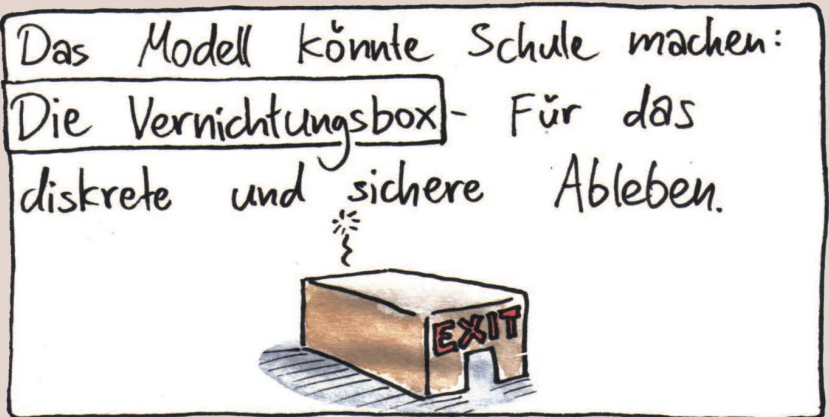 Das Modell könnte Schule machen:
Die Vernichtungsbox - Für das
diskrete und sichere Ableben.
EXIT